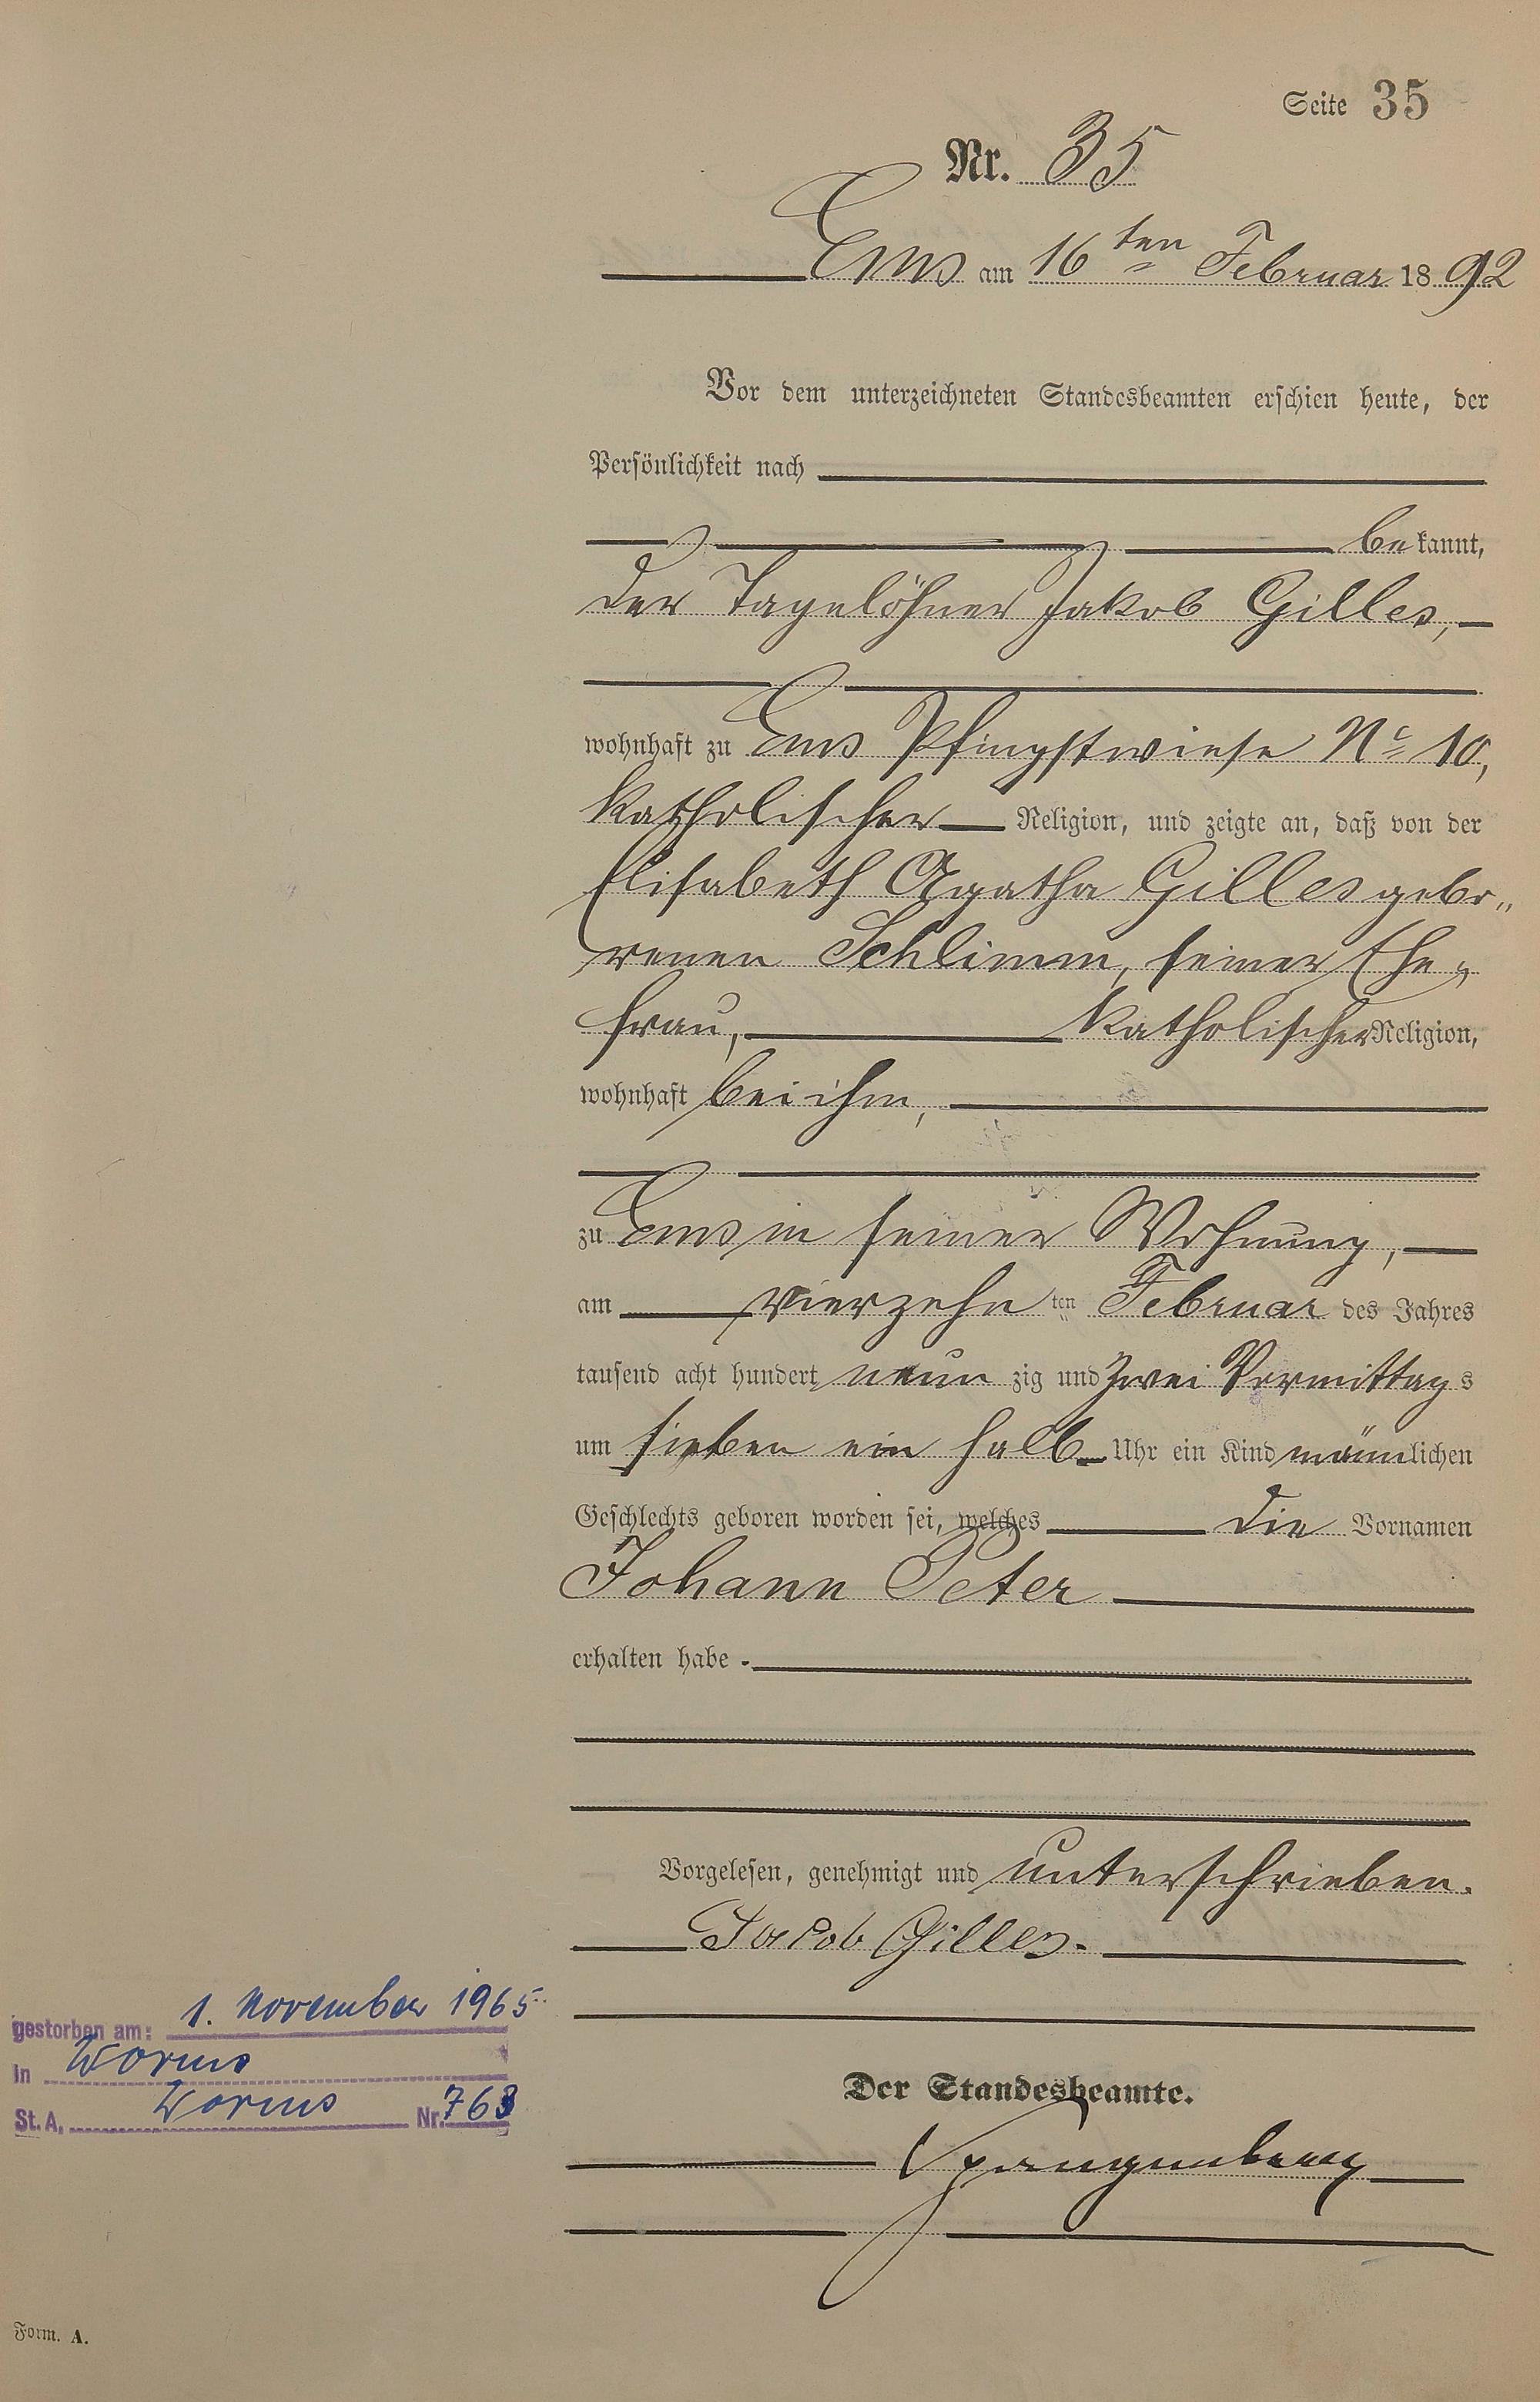 Seite 35
Nr. 35
Ems am 16ten Februar 1892
Vor dem unterzeichneten Standesbeamten erschien heute, der
Persönlichkeit nach
bekannt,
der Tagelöhner Jakob Gilles,
wohnhaft zu Ems Pfingstwiese No 10,
katholischer Religion, und zeigte an, daß von der
Elisabeth Agatha Gilles gebo„
renen Schlimm, seiner Ehe„
frau, katholischer Religion,
wohnhaft bei ihm,
zu Ems in seiner Wohnung,
am vierzehnten Februar des Jahres
tausend acht hundert neunzig und zwei Vormittags
um sieben ein halb Uhr ein Kind männlichen
Geschlechts geboren worden sei, welches die Vornamen
Johann Peter
erhalten habe.
Vorgelesen, genehmigt und unterschrieben.
Jacob Gilles.
gestorben am: 1. November 1965
in Worms
St. A. Worms Nr. 763
Der Standesbeamte.
Spangenberg
Form. A.